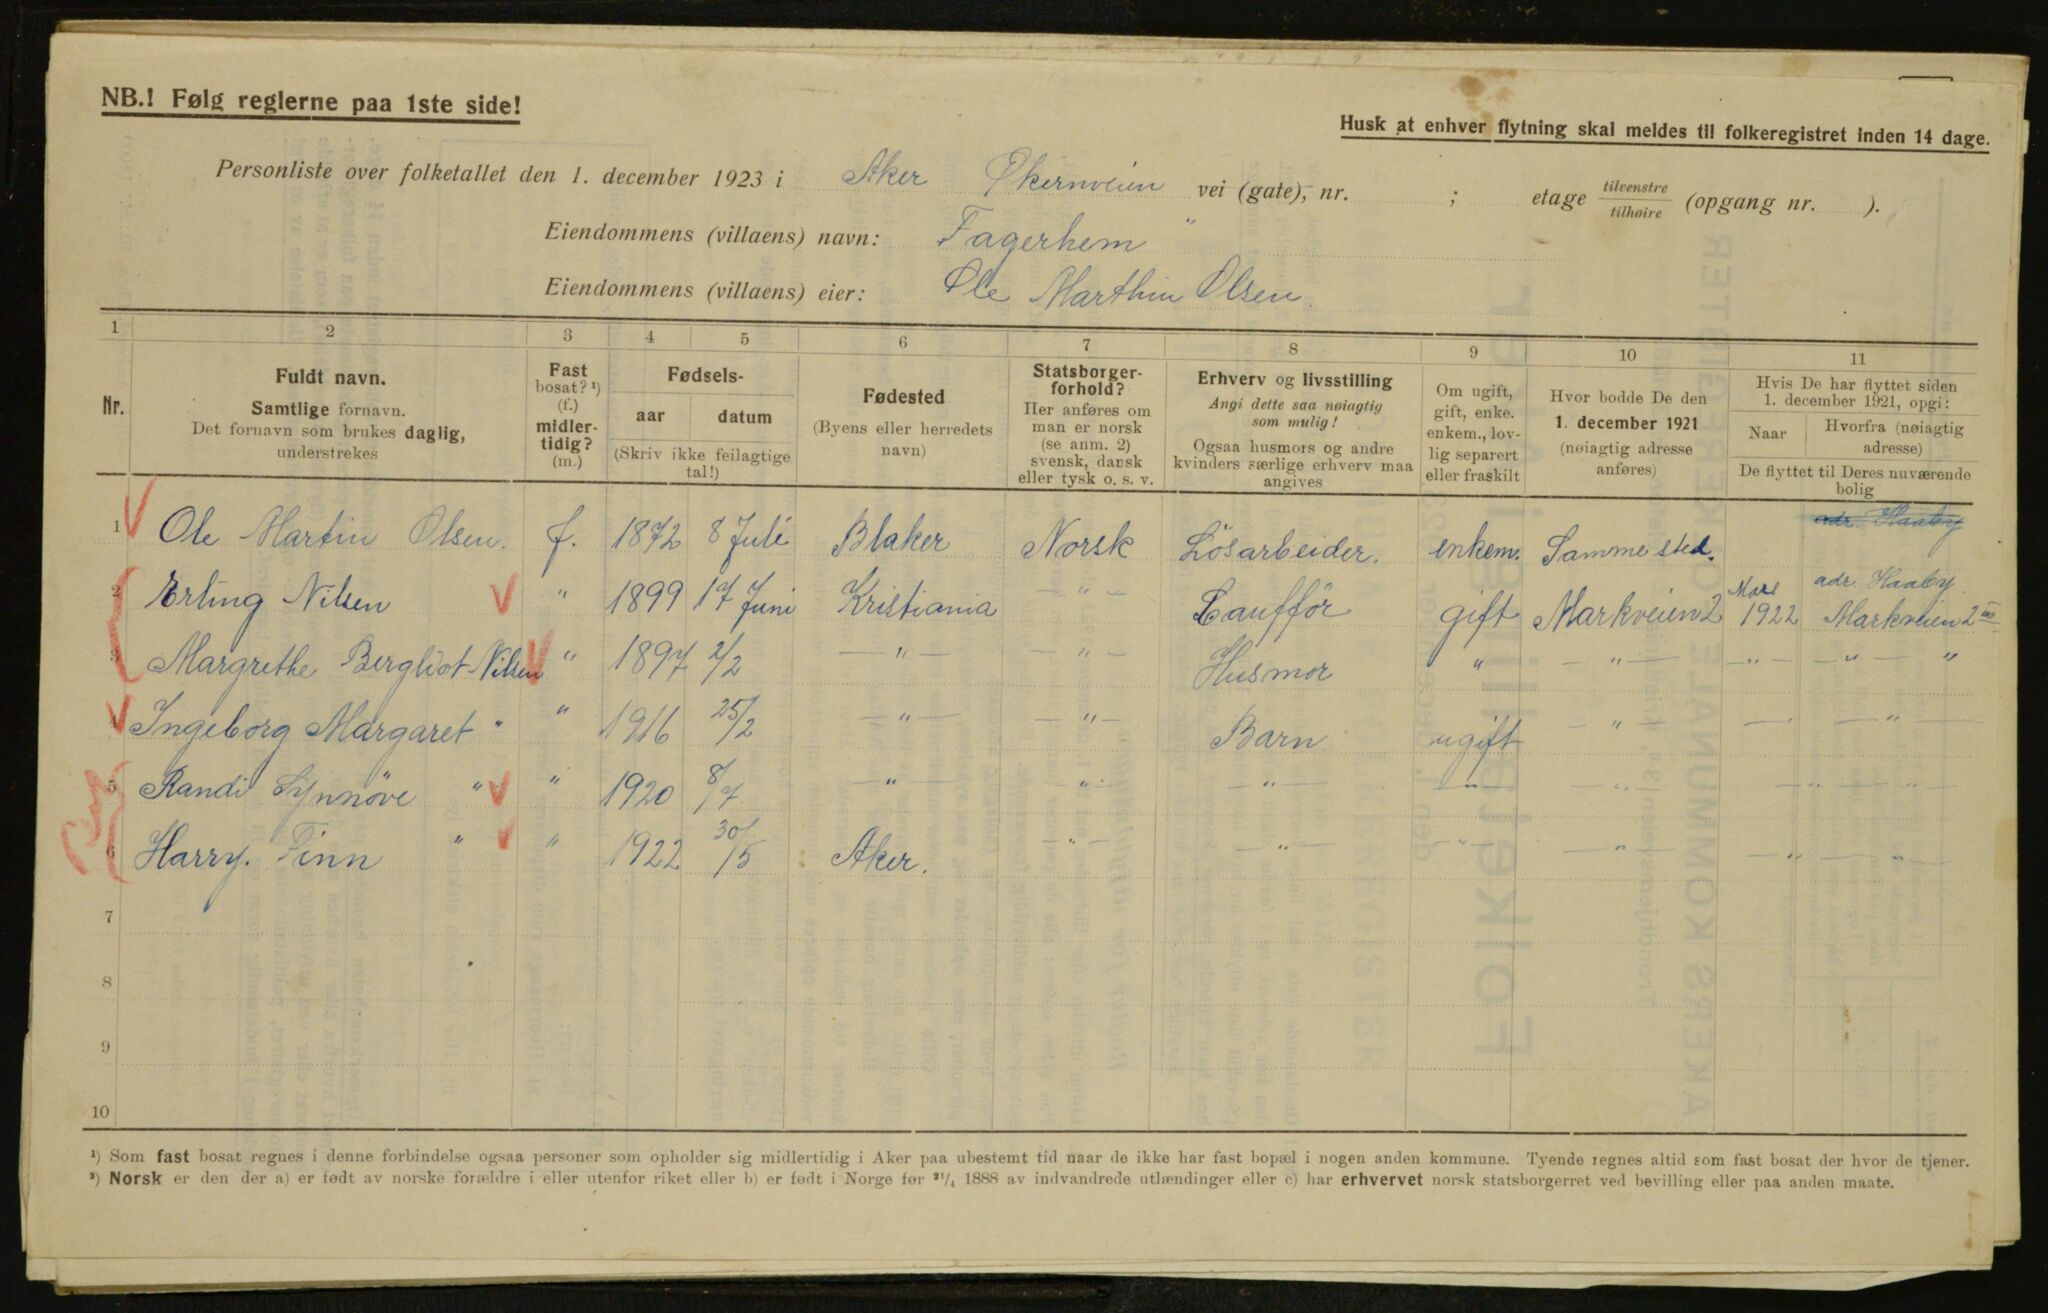 NB.! Følg reglerne paa 1ste side!
Husk at enhver flytning skal meldes til folkeregistret inden 14 dage.
Personliste over folketallet den 1. december 1923 i Aker Økernveien vei (gate), nr. ; etage tilvenstre tilhøire (opgang nr. ).
Eiendommens (villaens) navn: Fagerhem "
Eiendommens (villaens) eier: Ole Marthin Olsen.
1 2 3 4 5 6 7 8 9 10 11
Nr. Fuldt navn. Samtlige fornavn. Det fornavn som brukes daglig, understrekes
Fast bosat? ¹) (f.) midler-tidig? (m.)
Fødsels- aar datum (Skriv ikke feilagtige tal!)
Fødested (Byens eller herredets navn)
Statsborger-forhold? Her anføres om man er norsk (se anm. 2) svensk, dansk eller tysk o. s. v.
Erhverv og livsstilling Angi dette saa nøiagtig som mulig! Ogsaa husmors og andre kvinders særlige erhverv maa angives
Om ugift, gift, enke. enkem., lov-lig separert eller fraskilt
Hvor bodde De den 1. december 1921 (nøiagtig adresse anføres)
Hvis De har flyttet siden 1. december 1921, opgi: Naar Hvorfra (nøiagtig adresse) De flyttet til Deres nuværende bolig
adr. Haaby
1 Ole Martin Olsen. f. 1872 8 Juli Blaker Norsk Lösarbeider. enkem. Samme sted.
adr. Haaby
2 Erling Nilsen " 1899 17 Juni Kristiania — " — Cauffför gift Markveien 2 Mars 1922 Markveien 2 III
3 Margrethe Bergliot Nilsen " 1897 2/2 — " — — " — Husmor " — " — — " — — " — "
4 Ingeborg Margaret " " 1916 25/2 — " — — " — Barn ugift — " — — — " —
5 Randi Synnöve " " 1920 8/7 — " — — " — — " — " — " — — " — — " —
6 Harry. Finn " " 1922 30/5 Aker. — " — — " — — " — — " — — " — — " —
7
8
9
10
¹) Som fast bosat regnes i denne forbindelse ogsaa personer som opholder sig midlertidig i Aker paa ubestemt tid naar de ikke har fast bopæl i nogen anden kommune. Tyende regnes altid som fast bosat der hvor de tjener.
²) Norsk er den der a) er født av norske forældre i eller utenfor riket eller b) er født i Norge før 21/4 1888 av indvandrede utlændinger eller c) har erhvervet norsk statsborgerret ved bevilling eller paa anden maate.